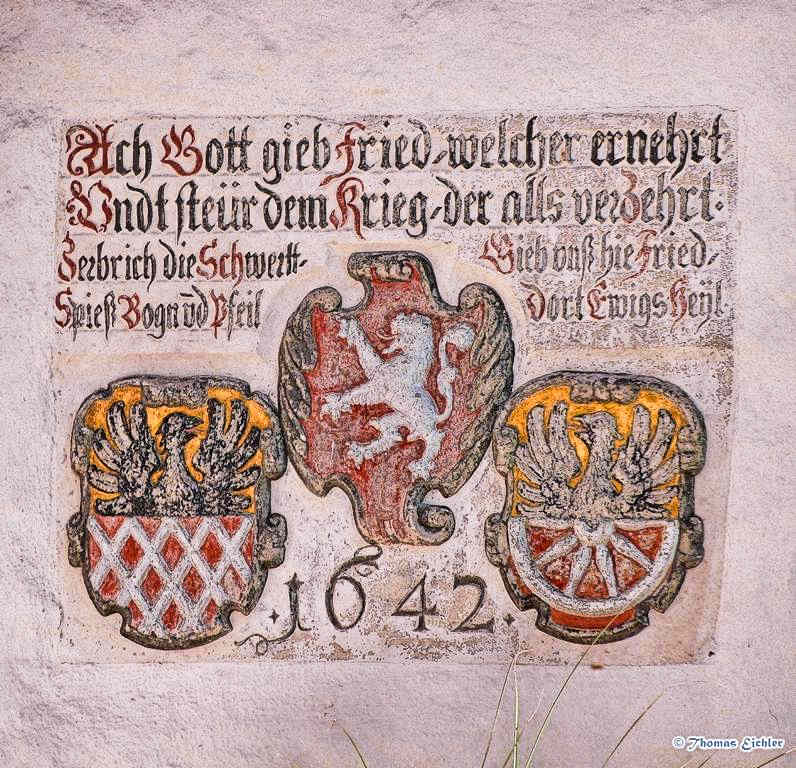 Ach Gott gieb Fried, welcher ernehrt
Undt steür dem Krieg, der alls verzehrt.
Zerbrich die Schwertt,
Spieß Bogn ūd Pfeil
Gieb vnß hie Fried,
Dort Ewigs Heÿl
1642.
© Thomas Eichler